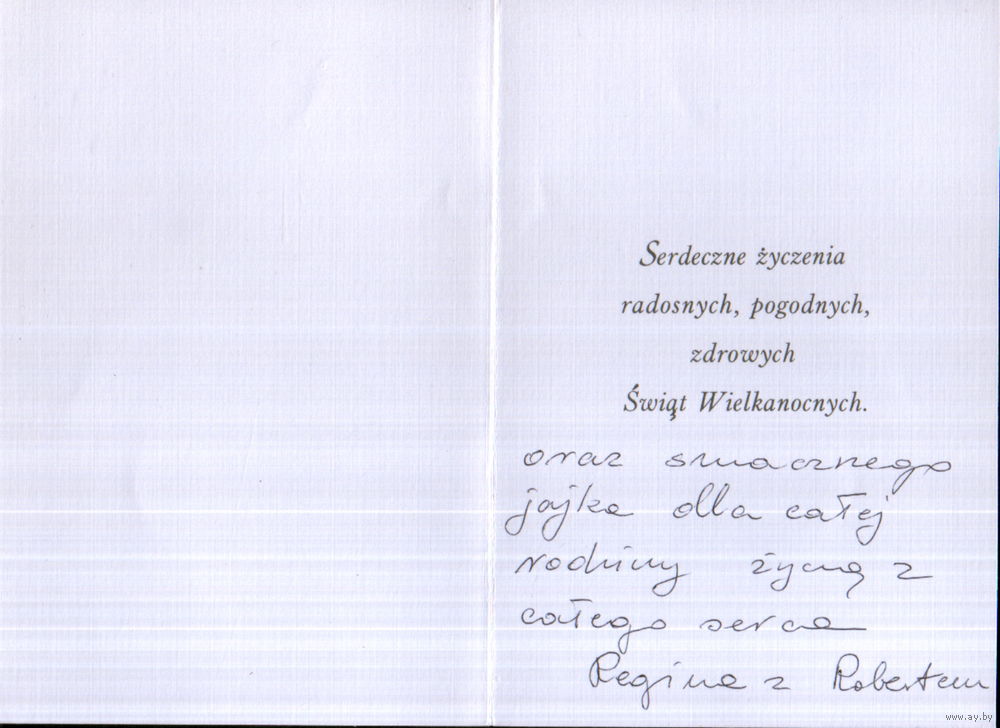 Serdeczne życzenia
radosnych, pogodnych,
zdrowych
Świąt Wielkanocnych.
oraz smacznego
jajka dla całej
rodziny życzą z
całego serca
Regina z Robertem
www.ay.by